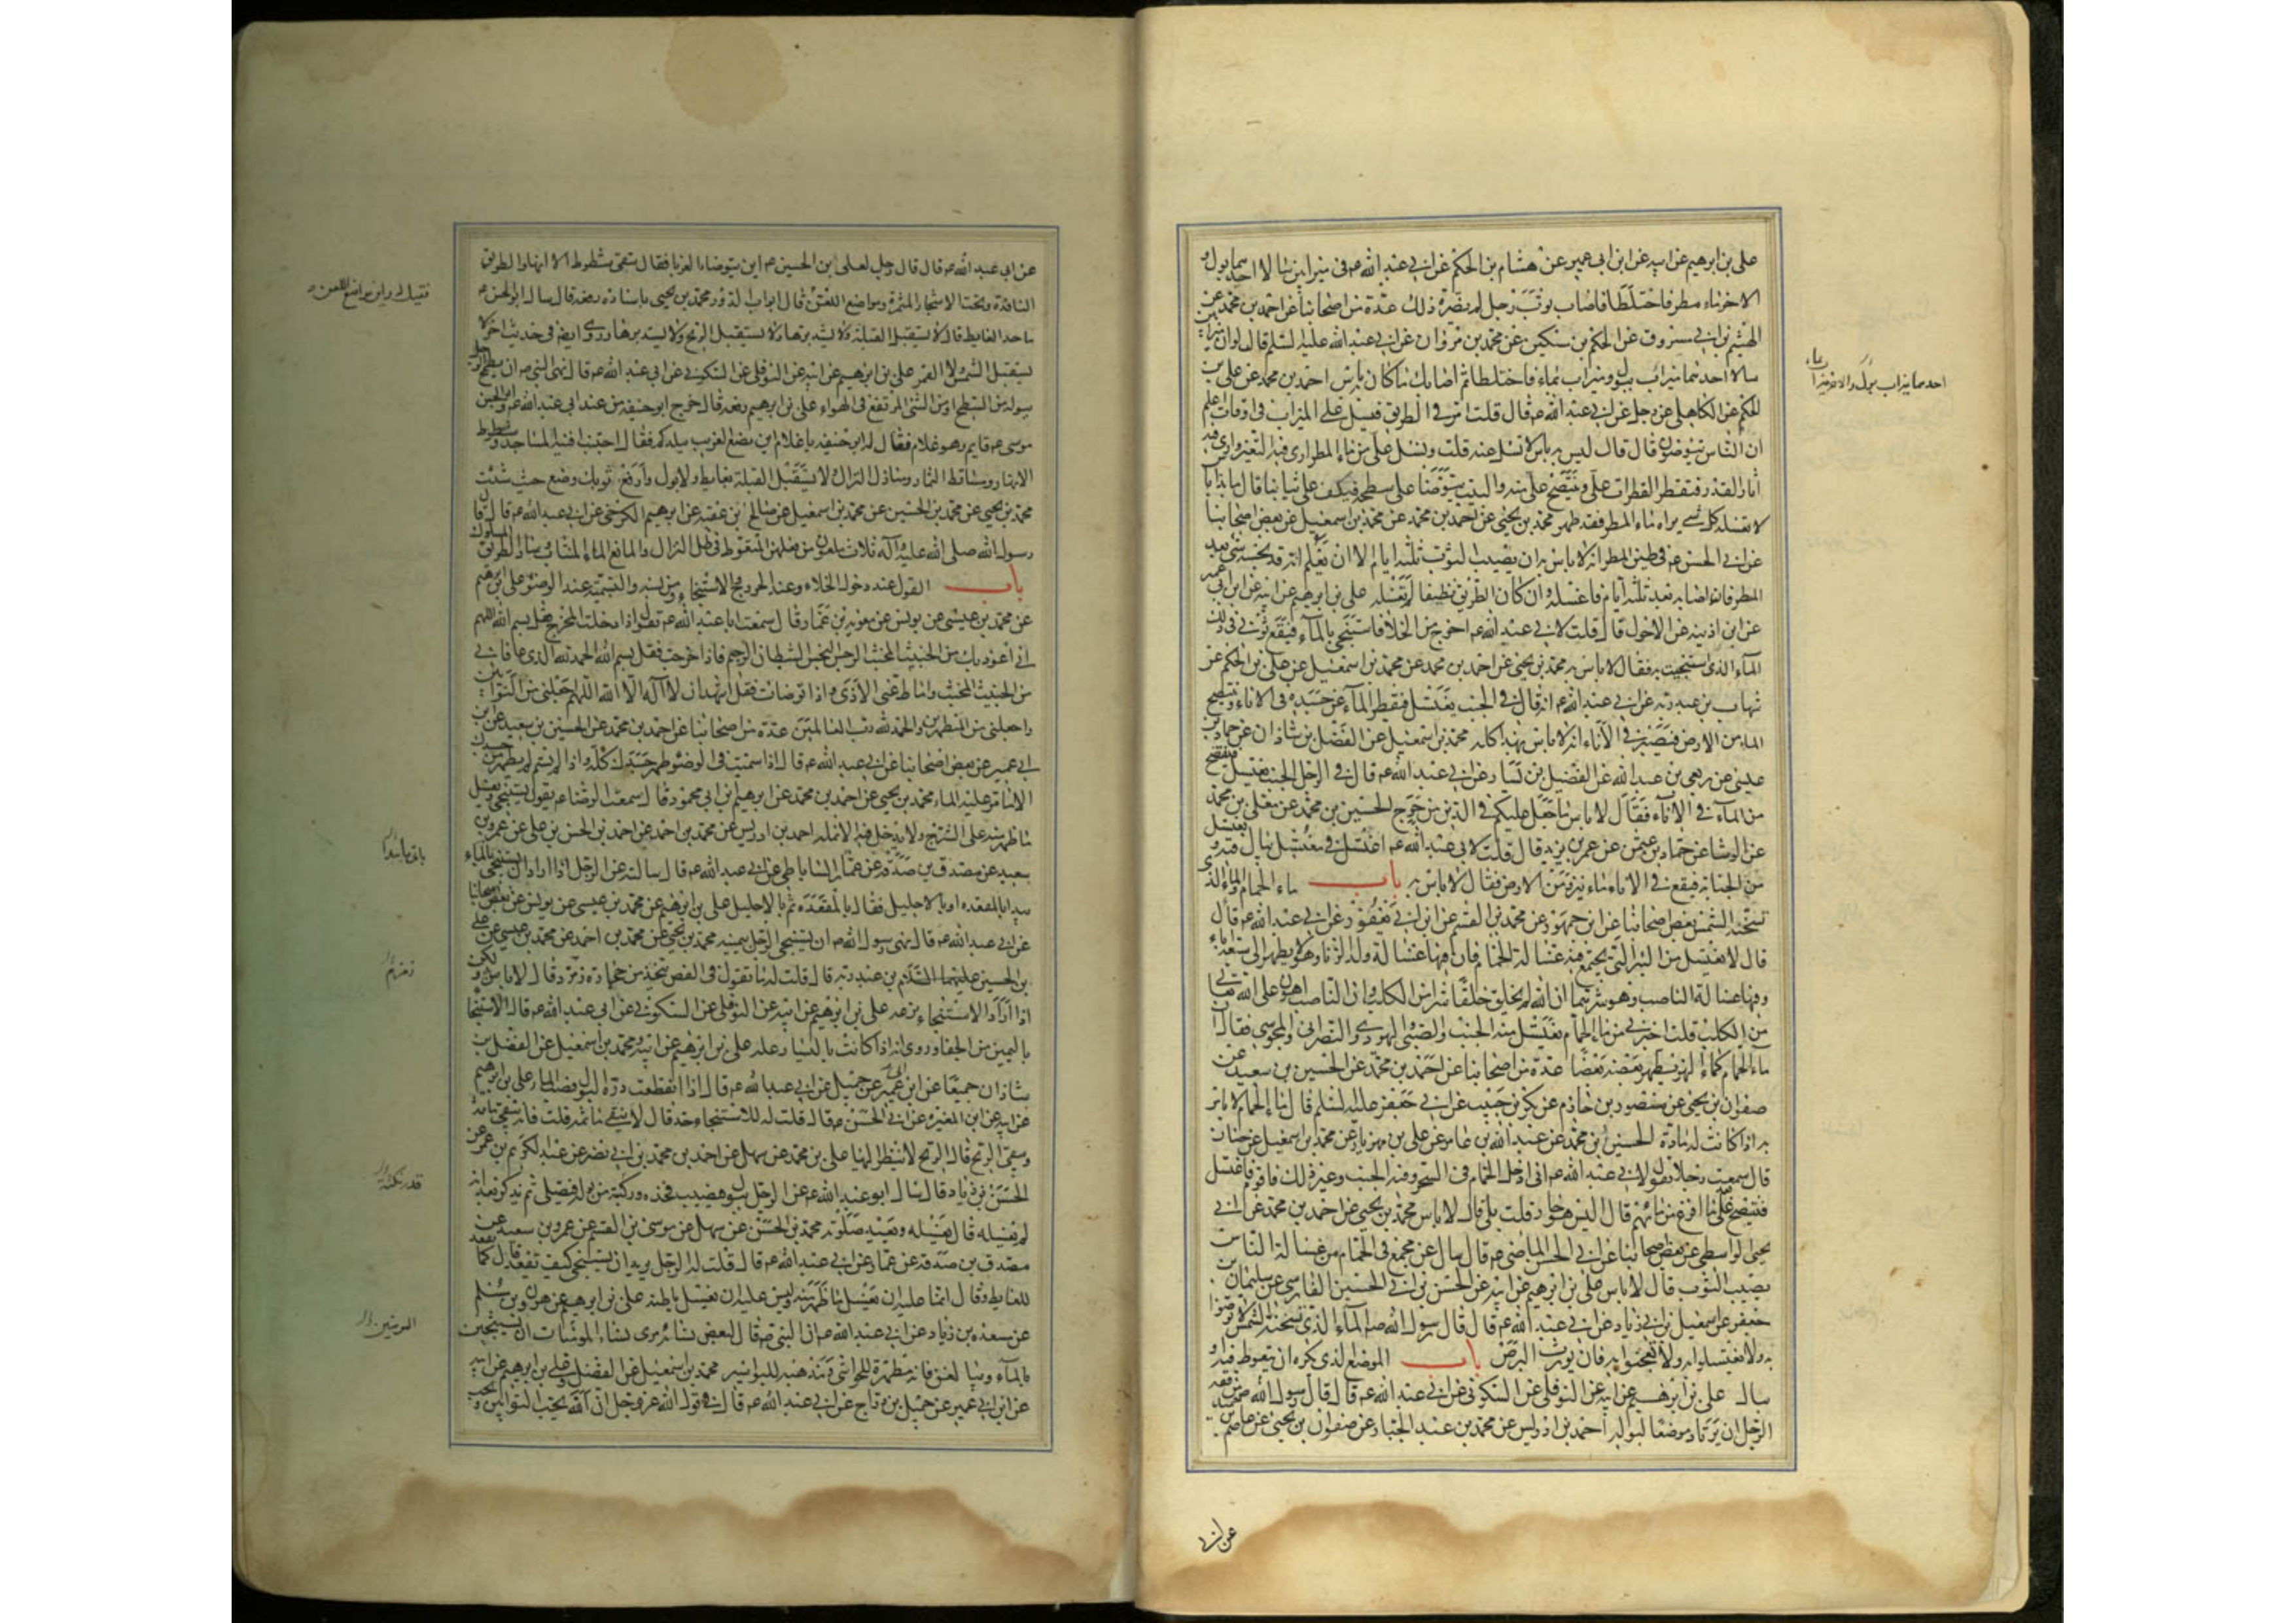 على بن ابرهيم عن ابيه عن ابن ابى عمير عن هشام بن الحكم عن ابى عبد الله عه فى ميزابين سالا احدهما بول و
الاخر ماء مطر فاختلطا فاصاب ثوب رجل لم يضره ذلك عدة من اصحابنا عن احمد بن محمد عن
الهيثم بن ابى مسروق عن الحكم بن مسكين عن محمد بن مروان عن ابى عبد الله عليه السلم قال لو ان ميزابين
سالا احدهما ميزاب ببول وميزاب بماء فاختلطا ثم اصابك ما كان به باس احمد بن محمد عن على بن
الحكم عن الكاهلى عن رجل عن ابى عبد الله عه قال قلت امر فى الطريق فيسيل على الميزاب فى اوقات اعلم
ان الناس يتوضون قال قال ليس به باس لا تسل عنه قلت ويسيل على من ماء المطر ارى فيه التغير وارى فيه
اثار القذر فتقطر القطرات على وينتضح على منه والبيت يتوضا على سطحه فيكف على ثيابنا قال ما بذا باس
لا تغسله كل شى يراه ماء المطر فقد طهر محمد بن يحيى عن احمد بن محمد عن محمد بن اسمعيل عن بعض اصحابنا
عن ابى الحسن عه فى طين المطر انه لا باس به ان يصيب الثوب ثلثه ايام الا ان تعلم انه قد نجسه شى بعد
المطر فان اصابه بعد ثلثه ايام فاغسله وان كان الطريق نظيفا لم تغسله على بن ابرهيم عن ابيه عن ابن ابى عمير
عن ابن اذينه عن الاحول قال قلت لابى عبد الله عه اخرج من الخلا فاستنجى بالماء فيقع ثوبى فى ذلك
الماء الذى استنجيت به فقال لا باس به محمد بن يحيى عن احمد بن محمد عن محمد بن اسمعيل عن على بن الحكم عن
شهاب بن عبد ربه عن ابى عبد الله عه انه قال فى الجنب يغتسل فيقطر الماء عن جسده فى الاناء وينتضح
الماء من الارض فيصير فى الاناء انه لا باس بهذا كله محمد بن اسمعيل عن الفضل بن شاذان عن حماد بن
عيسى عن ربعى بن عبد الله عن الفضيل بن يسار عن ابى عبد الله عه قال فى الرجل الجنب يغتسل فينتضح
من الماء فى الاناء فقال لا باس ما جعل عليكم فى الدين من حرج الحسين بن محمد عن معلى بن محمد
عن الوشا عن حماد بن عثمن عن عمر بن يزيد قال قلت لابى عبد الله عه اغتسل فى مغتسل يبال فيه و يغتسل
من الجنابة فيقع فى الاناء ماء ينزو من الارض فقال لا باس به باب ماء الحمام والماء الذى
تسخنه الشمس بعض اصحابنا عن ابن جمهور عن محمد بن القسم عن ابن ابى يعفور عن ابى عبد الله عه قال
قال لا تغتسل من البئر التى يجتمع فيه غسالة الحمام فان فيها غسالة ولد الزنا وهو لا يطهر الى سبعة اباء
وفيها غسالة الناصب وهو شرهما ان الله لم يخلق خلقا شرا من الكلب وان الناصب اهون على الله تعالى
من الكلب قلت اخبرنى من ماء الحمام يغتسل منه الجنب والصبى واليهودى والنصرانى والمجوسى فقال ان
ماء الحمام كماء النهر يطهر بعضه بعضا عدة من اصحابنا عن احمد بن محمد عن الحسين بن سعيد عن
صفوان بن يحيى عن منصور بن حازم عن بكر بن حبيب عن ابى جعفر عليه السلم قال ماء الحمام لا باس
به اذا كانت له مادة الحسين بن محمد عن عبد الله بن عامر عن على بن مهزيار عن محمد بن اسمعيل عن حنان
قال سمعت رجلا يقول لابى عبد الله عه انى ادخل الحمام فى السحر وفيه الجنب وغير ذلك فاقوم فاغتسل
فينتضح على ما افرغ من مائهم قال اليس هو جار قلت بلى قال لا باس محمد بن يحيى عن احمد بن محمد عن ابى
يحيى الواسطى عن بعض اصحابنا عن ابى الحسن الماضى عه قال سال عن مجمع فى الحمام من غسالة الناس
يصيب الثوب قال لا باس على بن ابرهيم عن ابيه عن الحسن بن ابى الحسين الفارسى عن سليمان بن
جعفر عن اسمعيل بن ابى زياد عن ابى عبد الله عه قال قال رسول الله صه الماء الذى تسخنه الشمس لا توضوا
به ولا تغتسلوا به ولا تعجنوا به فان يورث البرص باب الموضع الذى كره ان يتغوط فيه و
يبال على بن ابرهيم عن ابيه عن النوفلى عن السكونى عن ابى عبد الله عه قال قال رسول الله صه من فقه
الرجل ان يرتاد موضعا لبوله احمد بن ادريس عن محمد بن عبد الجبار عن صفوان بن يحيى عن عاصم بن
احدهما ميزاب بول والاخر ميزاب ماء
عن ابى
عن ابى عبد الله عه قال قال رجل لعلى بن الحسين عه اين يتوضا الغربا فقال يتقى شطوط الانهار والطرق
النافذة وتحت الاشجار المثمرة ومواضع اللعن قال ابواب الدور محمد بن يحيى باسناده رفعه قال سال ابو الحسن عه
ما حد الغايط قال لا يستقبل القبلة ولا يستدبرها ولا يستقبل الريح ولا يستدبرها وروى ايضا فى حديث اخر لا
يستقبل الشمس ولا القمر على بن ابرهيم عن ابيه عن النوفلى عن السكونى عن ابى عبد الله عه قال نهى النبى صه ان يطمح الرجل
ببوله من السطح او من الشى المرتفع فى الهواء على بن ابرهيم رفعه قال خرج ابو حنيفه من عند ابى عبد الله عه وابو الحسن
موسى عه قايم وهو غلام فقال له ابو حنيفه يا غلام اين يضع الغريب ببلدكم فقال اجتنب افنية المساجد وشطوط
الانهار ومساقط الثمار ومنازل النزال ولا تستقبل القبلة بغايط ولا بول وارفع ثوبك وضع حيث شئت
محمد بن يحيى عن محمد بن الحسين عن محمد بن اسمعيل عن صالح بن عقبه عن ابرهيم الكرخى عن ابى عبد الله عه قال قال
رسول الله صلى الله عليه وآله ثلاث ملعون من فعلهن المتغوط فى ظل النزال والمانع الماء المنتاب وساد الطريق المسلوك
باب القول عند دخول الخلاء وعند الخروج والاستنجاء ومن نسيه والتسمية عند الوضوء على بن ابرهيم
عن محمد بن عيسى عن يونس عن معوية بن عمار قال سمعت ابا عبد الله عه يقول اذا دخلت المخرج فقل بسم الله اللهم
انى اعوذ بك من الخبيث المخبث الرجس النجس الشيطان الرجيم فاذا خرجت فقل بسم الله الحمد لله الذى عافانى
من الخبيث المخبث واماط عنى الاذى واذا توضات فقل اشهد ان لا اله الا الله اللهم اجعلنى من التوابين
واجعلنى من المتطهرين والحمد لله رب العالمين عدة من اصحابنا عن احمد بن محمد عن الحسين بن سعيد عن ابن
ابى عمير عن بعض اصحابنا عن ابى عبد الله عه قال اذا سميت فى الوضوء طهر جسدك كله واذا لم تسم لم يطهر من جسدك
الا ما مر عليه الماء محمد بن يحيى عن احمد بن محمد عن ابرهيم بن ابى محمود قال سمعت الرضا عه يقول يستنجى ويغسل
ما ظهر منه على الشرج ولا يدخل فيه الانملة احمد بن ادريس عن محمد بن احمد عن احمد بن الحسن بن على عن عمرو بن
سعيد عن مصدق بن صدقه عن عمار الساباطى عن ابى عبد الله عه قال سالته عن الرجل اذا اراد ان يستنجى بالماء
يبدا بالمقعده او بالاحليل فقال بالمقعده ثم بالاحليل على بن ابرهيم عن محمد بن عيسى عن يونس عن بعض اصحابنا
عن ابى عبد الله عه قال نهى رسول الله صه ان يستنجى الرجل بيمينه محمد بن يحيى عن محمد بن احمد عن محمد بن عيسى عن على
بن الحسين عليهما السلام بن عبد ربه قال قلت له ما تقول فى الفص يتخذ من حجارة زمزد قال لا باس به ولكن
اذا اراد الاستنجاء نزعه على بن ابرهيم عن ابيه عن النوفلى عن السكونى عن ابى عبد الله عه قال الاستنجا
باليمين من الجفا وروى انه اذا كانت باليسار علة على بن ابرهيم عن ابيه ومحمد بن اسمعيل عن الفضل بن
شاذان جميعا عن ابن ابى عمير عن جميل عن ابى عبد الله عه قال اذا انقطعت درة البول فصب الماء على بن ابرهيم
عن ابيه عن ابن المغيره عن ابى الحسن عه قال قلت له للاستنجاء حد قال لا ينقى ما ثمه قلت فانه ينقى ما ثمه
ويبقى الريح قال الريح لا ينظر اليها على بن محمد عن سهل عن احمد بن محمد بن ابى نصر عن عبد الكريم بن عمرو عن
الحسن بن زياد قال سال ابو عبد الله عه عن الرجل يبول فيصيب فخذه وركبته من بوله فيصلى ثم يذكر بعد انه
لم يغسله قال يغسله ويعيد صلوته محمد بن الحسن عن سهل عن موسى بن القسم عن عمرو بن سعيد عن
مصدق بن صدقة عن عمار عن ابى عبد الله عه قال قلت له الرجل يريد ان يستنجى كيف يقعد قال كما يقعد
للغايط وقال انما عليه ان يغسل ما ظهر منه وليس عليه ان يغسل باطنه على بن ابرهيم عن هرون بن مسلم
عن مسعده بن زياد عن ابى عبد الله عه ان النبى صه قال لبعض نسائه مرى نساء المومنات ان يستنجين
بالماء ويبالغن فانه مطهرة للحواشى ومذهبه للبواسير محمد بن اسمعيل عن الفضل وعلى بن ابرهيم عن ابيه
عن ابن ابى عمير عن جميل بن دراج عن ابى عبد الله عه قال فى قول الله عز وجل ان الله يحب التوابين ويحب
فقيل له واين مواضع اللعن